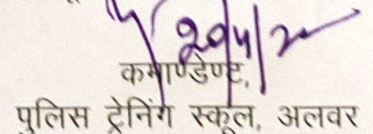 कमाण्डेण्ट,
पुलिस ट्रेनिंग स्कूल, अलवर